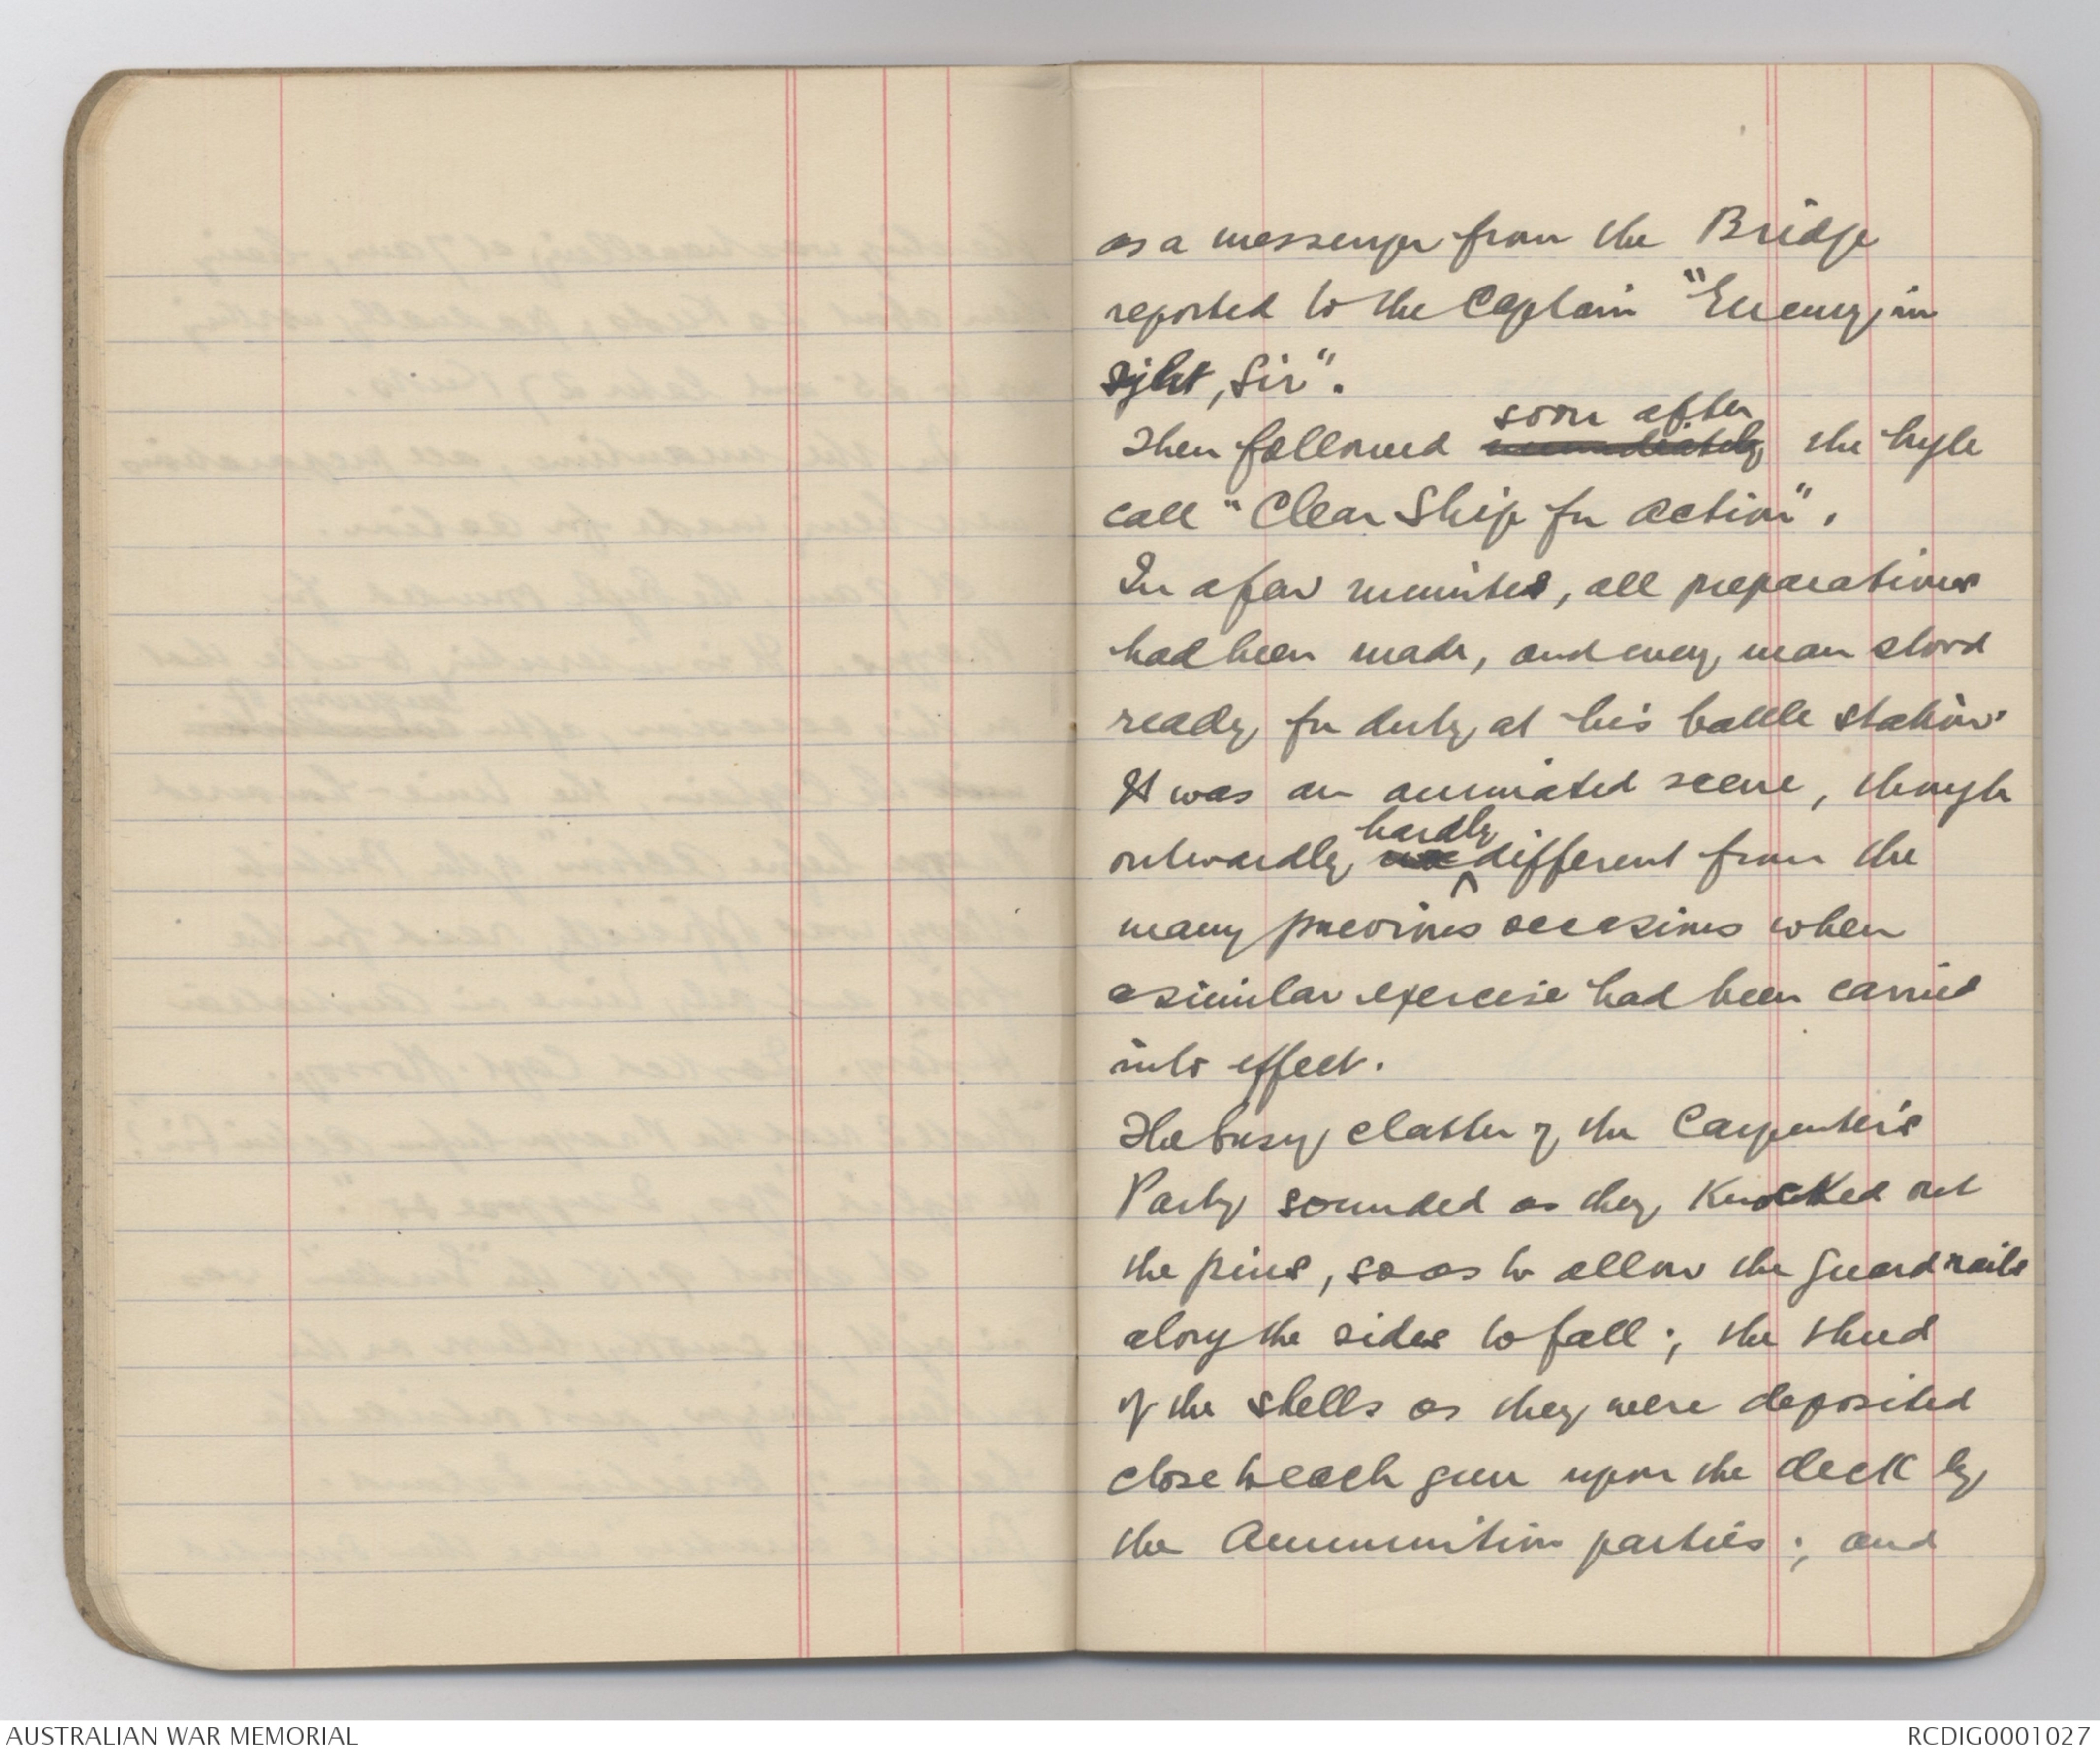 as a messenger from the Bridge
reported to the Captain "Enemy in
sight, Sir".
soon after
Then followed immediately the bugle
call "Clear Ship for Action".
In a few minutes, all preparations
had been made, and every man stood
ready for duty at his battle station.
It was an animated scene, though
hardly
outwardly different from the
many previous occasions when
a similar exercise had been carried
into effect.
The busy clatter of the Carpenter's
Party sounded as they knocked out
the pins, so as to allow the guard rails
along the sides to fall; the thud
of the shells as they were deposited
close to each gun upon the deck by
the Ammunition parties; and
AUSTRALIAN WAR MEMORIAL
RCDIG0001027